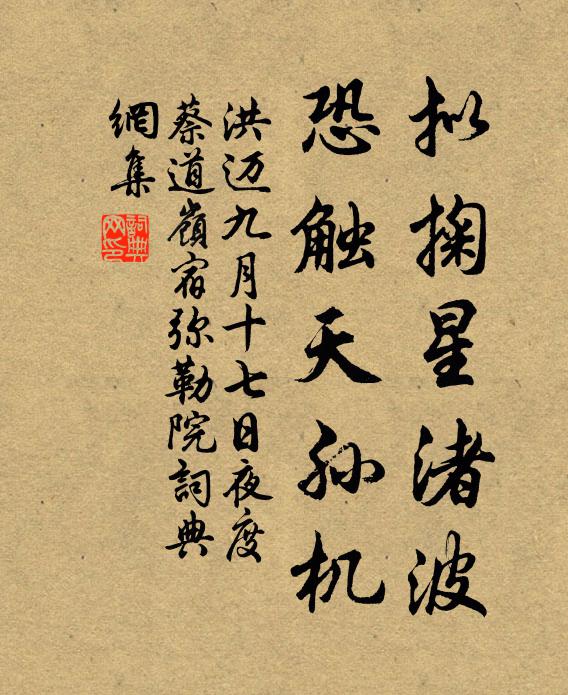 拟掬星渚波
恐触天孙机
洪迈九月十七日夜度
蔡道嶺宿弥勒院詞典
網集
詞典
网印